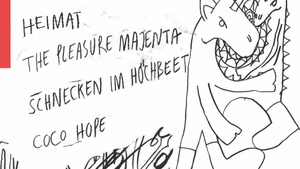 HEIMAT
THE PLEASURE MAJENTA
SCHNECKEN IM HOCHBEET
COCO HOPE